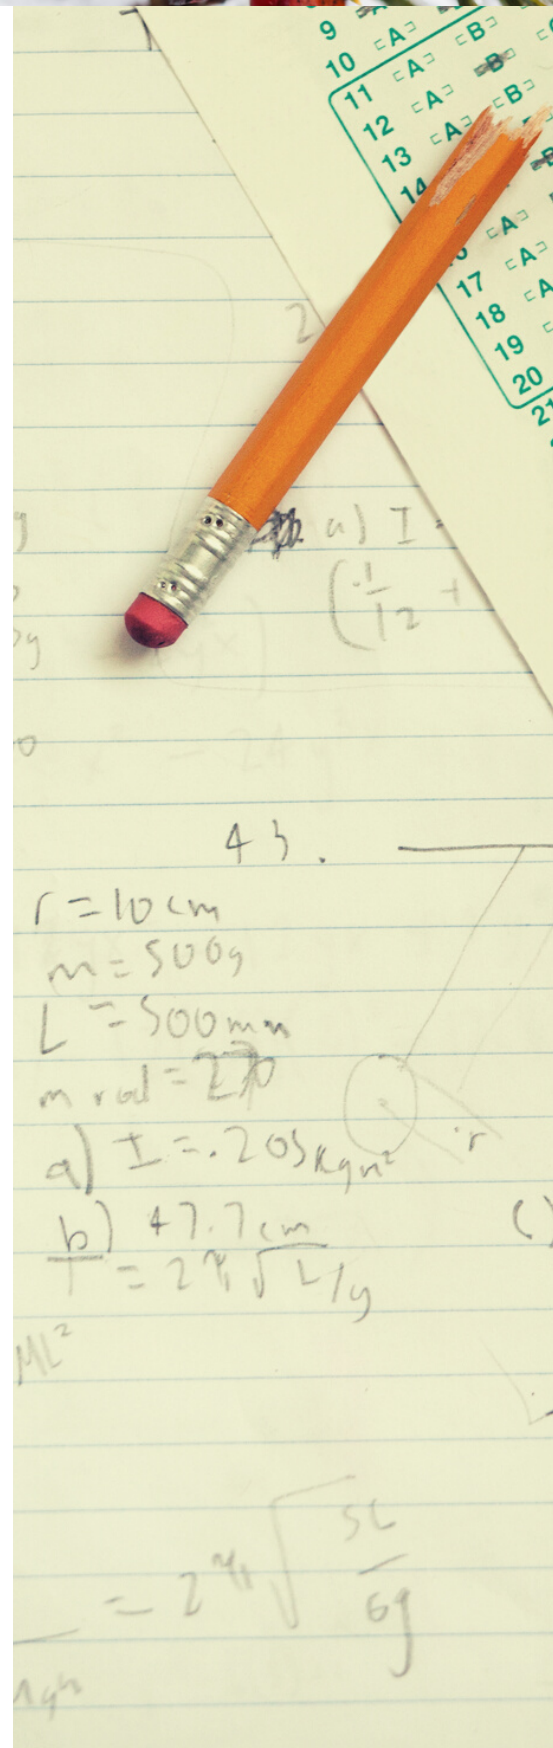 9 ⊏A⊐
10 ⊏A⊐ ⊏B⊐
11 ⊏A⊐ ⊏B⊐
12 ⊏A⊐ ⊏B⊐
13 ⊏A⊐
14
⊏A⊐
17 ⊏A⊐
18 ⊏A
19
20
21
2
a) I =
(.1/12 +
43.
r = 10 cm
m = 500g
L = 500mm
m rod = 270
a) I = .205 kgm²
r
b) 47.7 cm
T = 2π√L/g
ML²
= 2π√5L/6g